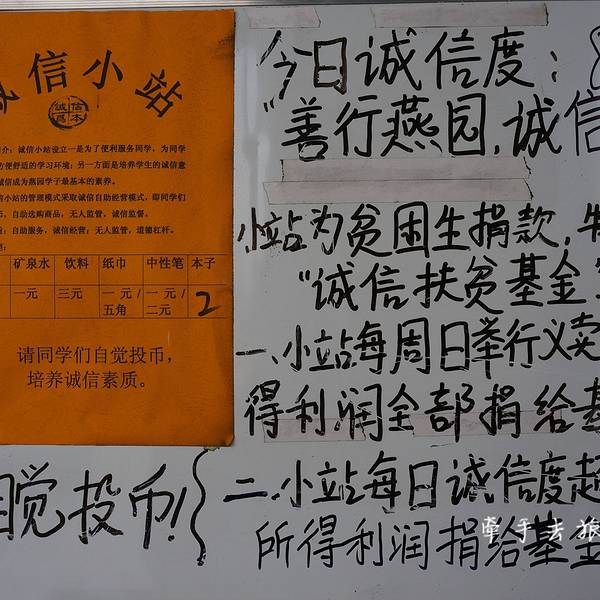 信小站
诚信
为本
介：诚信小站设立一是为了便利服务同学，为同学
方便舒适的学习环境；另一方面是培养学生的诚信意
诚信成为燕园学子最基本的素养。
信小站的管理模式采取诚信自助经营模式，即同学们
币，自助选购商品，无人监管，诚信监督。
：自助服务，诚信经营；无人监管，道德杠杆。
矿泉水 饮料 纸巾 中性笔 本子
一元 三元 一元/五角 一元/二元 2
请同学们自觉投币，
培养诚信素质。
自觉投币！
今日诚信度：
“善行燕园，诚信
小站为贫困生捐款，
“诚信扶贫基金
一、小站每周日举行义卖
得利润全部捐给基
二、小站每日诚信度超
所得利润捐给基金
牵手去旅